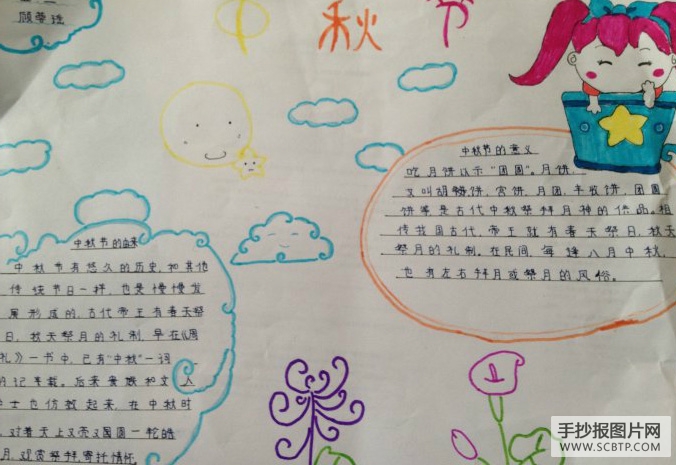 顾
中秋节
中秋节的由来
中秋节有悠久的历史,和其他
传统节日一样,也是慢慢发
展形成的,古代帝王有春天祭
日,秋天祭月的礼制,早在《周
礼》一书中,已有"中秋"一词
的记载。后来贵族和文人
学士也仿效起来,在中秋时
对着天上又亮又圆一轮皓
月,观赏祭拜,寄托情怀
中秋节的意义
吃月饼以示"团圆"。月饼,
又叫胡饼,宫饼,月团,丰收饼,团圆
饼等是古代中秋祭拜月神的供品。相
传我国古代,帝王就有春天祭日,秋天
祭月的礼制。在民间,每逢八月中秋,
也有左右拜月或祭月的风俗。
手抄报图片网
WWW.SCBTP.COM